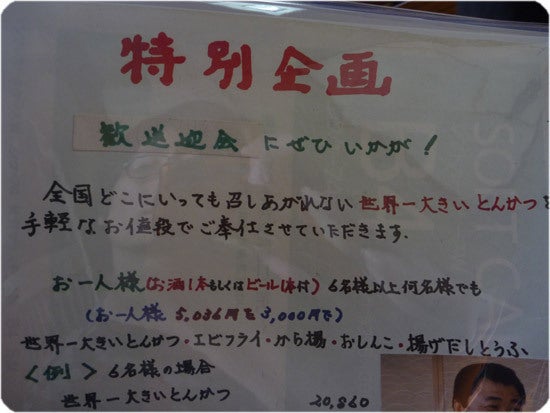 特別企画
歓送迎会にぜひいかが!
全国どこにいっても召しあがれない世界一大きいとんかつを
手軽なお値段でご奉仕させていただきます.
お一人様(お酒1本もしくはビール1本付)6名様以上何名様でも
(お一人様 5,036円を3,000円で)
世界一大きいとんかつ・エビフライ・から揚・おしんこ・揚げだしとうふ
〈例〉6名様の場合
世界一大きいとんかつ 20,860